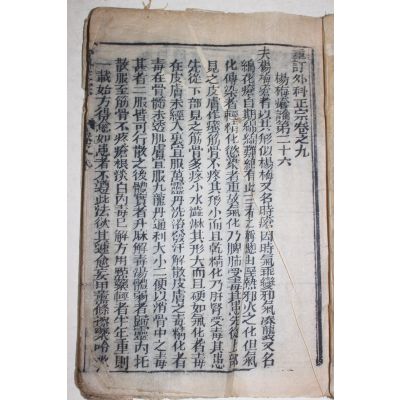 重訂外科正宗卷之九
楊梅瘡論第三十六
夫楊梅瘡者以其形似楊梅又名時瘡因時氣乖變邪氣湊襲又名
綿花瘡自期綿綿難絕有此三者之稱總由濕熱邪火之化但氣
化傳染者輕精化慾染者重故氣化乃脾肺受毒其患先從上部
見之皮膚作癢筋骨不疼其形小而且乾精化乃肝腎受毒其患
先從下部見之筋骨多疼小水澀淋其形大而且硬如氣化者毒
在皮膚未經入裏宜服萬靈丹洗浴發汗解散皮膚之毒精化者
毒在骨髓未透肌膚宜服九龍丹通利大小二便以瀉骨中之毒
甚者二服皆可行散之後體實者升麻解毒湯體弱者歸靈內托
散服至筋骨不疼瘡根淡白內毒已解方用點藥輕者半年重則
一載始方得愈如患者不遵此法欲其速愈